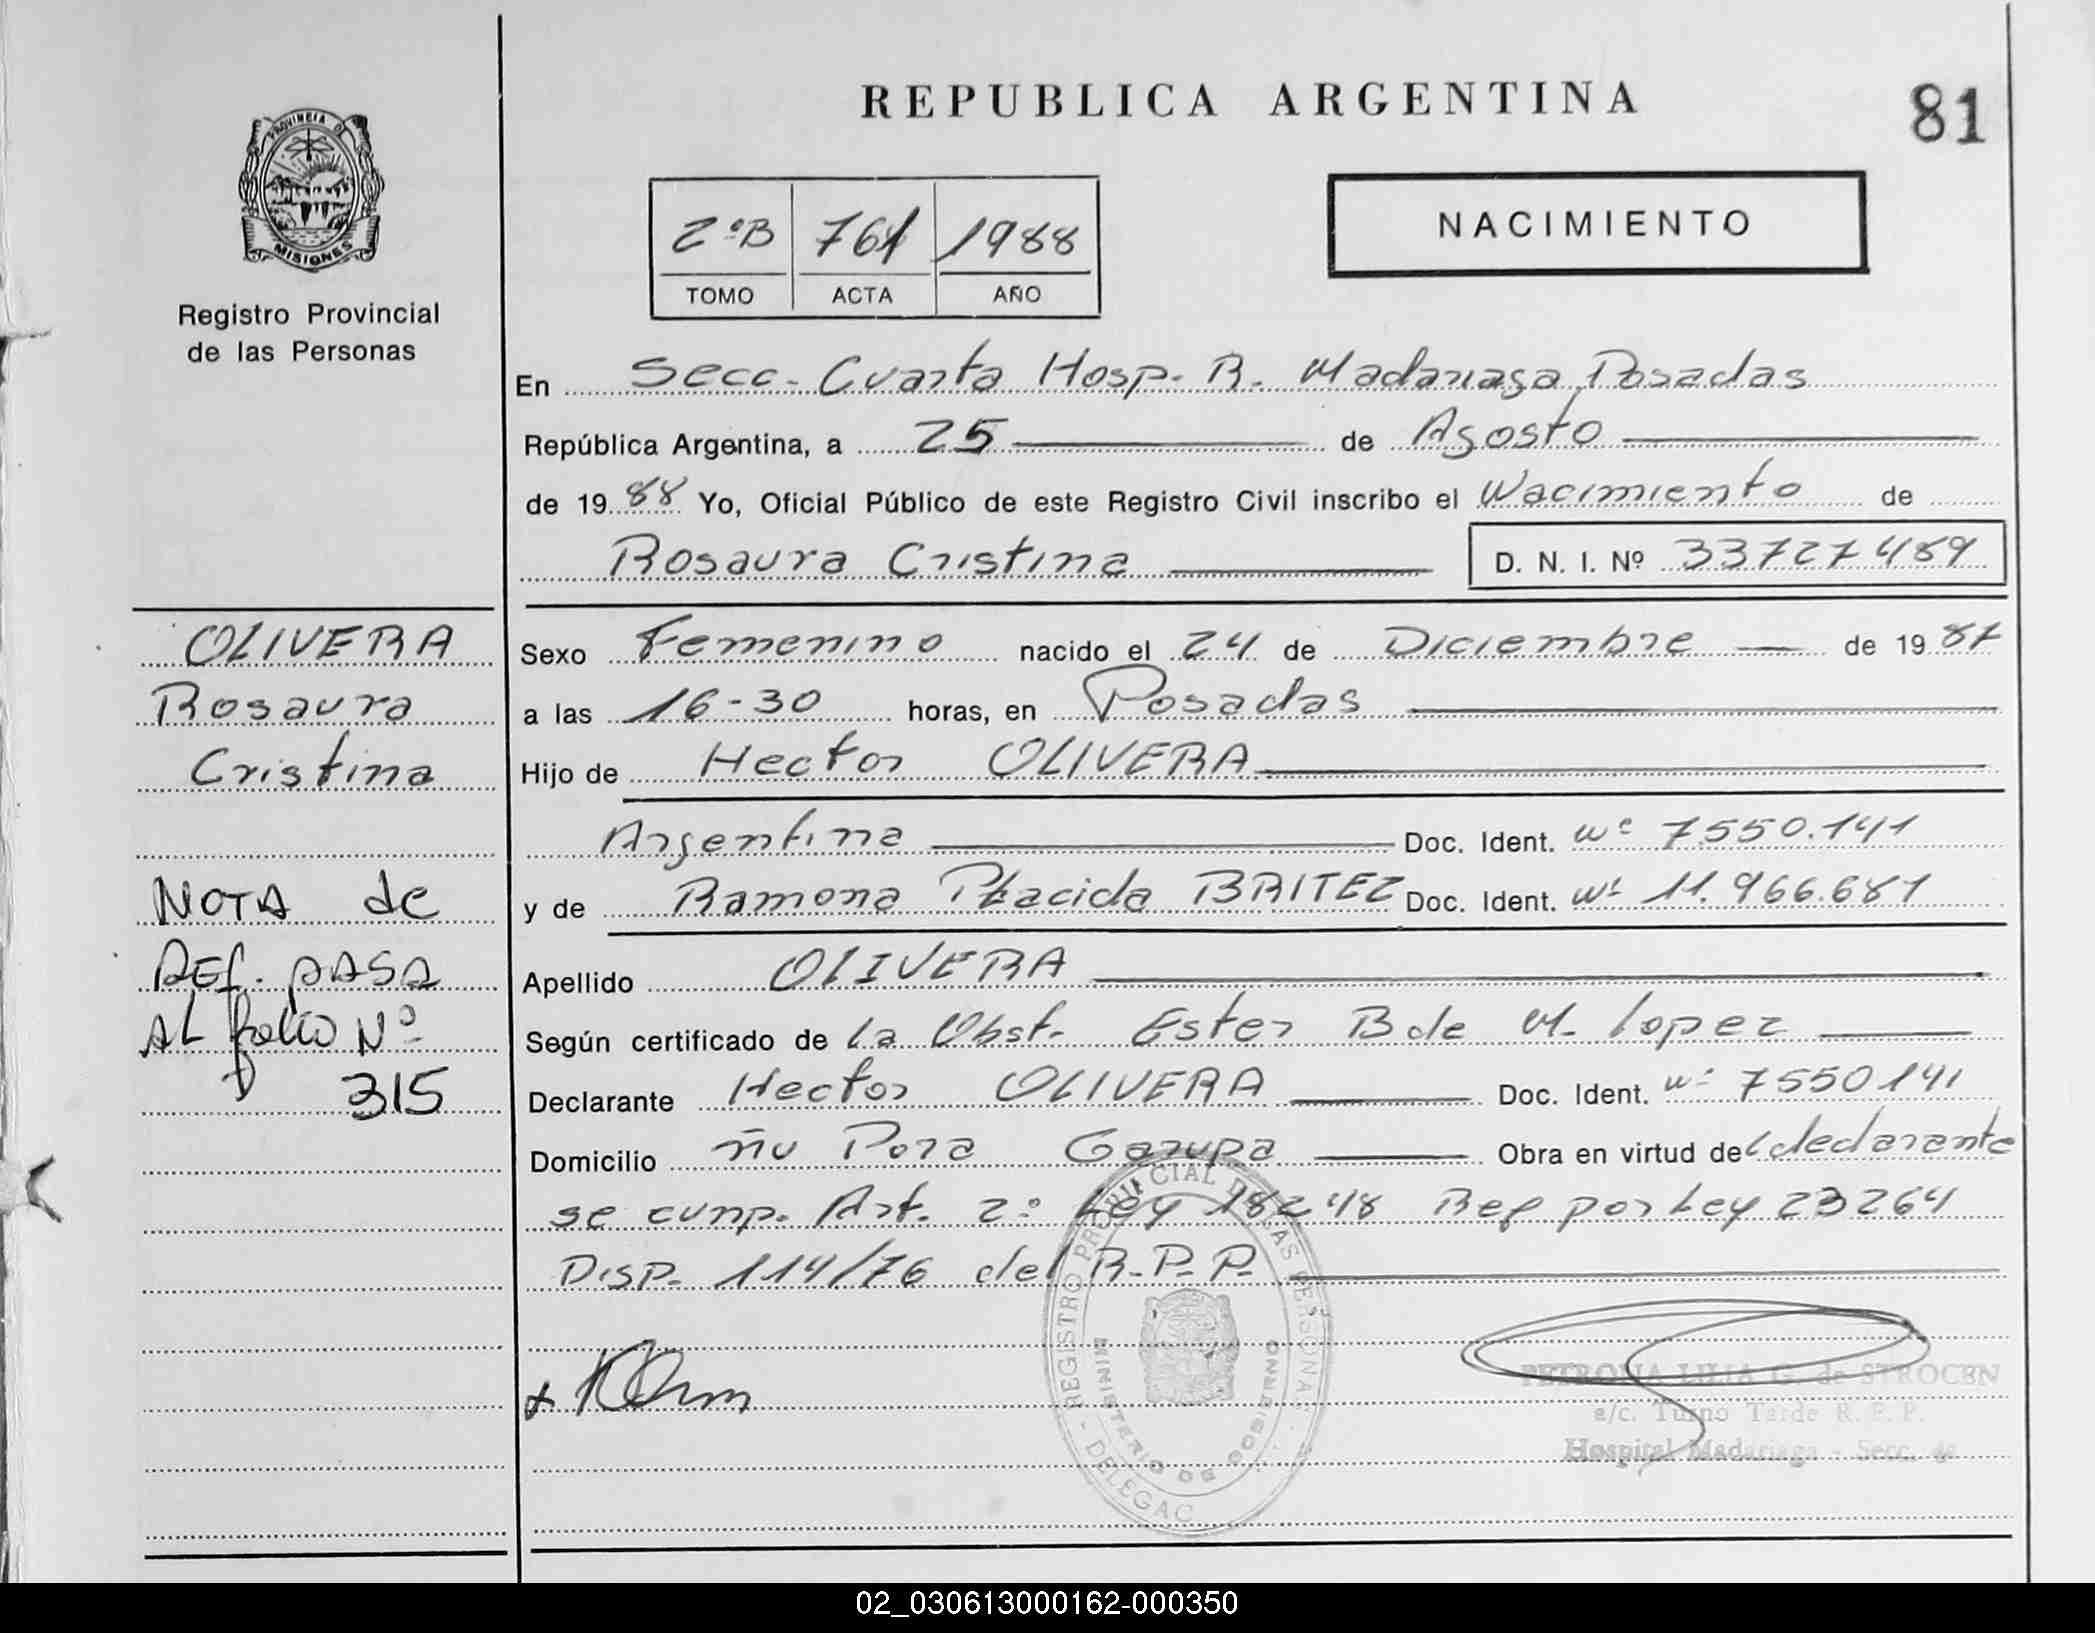 REPUBLICA ARGENTINA
81
PROVINCIA DE
MISIONES
Registro Provincial
de las Personas
2ºB 761 1988
TOMO ACTA AÑO
NACIMIENTO
En Secc. Cuarta Hosp. R. Madariaga Posadas
República Argentina, a 25 de Agosto
de 1988 Yo, Oficial Público de este Registro Civil inscribo el Nacimiento de
Rosaura Cristina D. N. I. Nº 33727489
OLIVERA
Rosaura
Cristina
NOTA de
REF. PASA
AL folio Nº
315
Sexo Femenino nacido el 24 de Diciembre de 1987
a las 16-30 horas, en Posadas
Hijo de Hector OLIVERA
Argentina Doc. Ident. Nº 7.550.141
y de Ramona Placida BRITEZ Doc. Ident. Nº 11.966.681
Apellido OLIVERA
Según certificado de la Obst. Ester B de M. Lopez
Declarante Hector OLIVERA Doc. Ident. Nº 7550141
Domicilio Ñu Pora Garupa Obra en virtud del declarante
se cump. Art. 2º Ley 18248 Ref por Ley 23264
Disp. 114/76 del R.P.P.
REGISTRO PROVINCIAL DE LAS PERSONAS
MINISTERIO DE GOBIERNO
DELEGAC
PETRONA LILIA G. de STROCEN
a/c. Turno Tarde R. P. P.
Hospital Madariaga - Secc. 4a
02_030613000162-000350